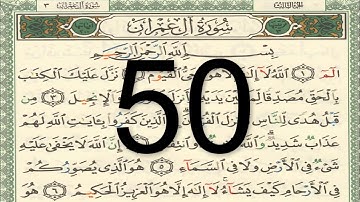 الجزء الثالث
٣ سورة آل عمران
سُورَةُ آلِ عِمْرَانَ
بِسْمِ اللَّهِ الرَّحْمَٰنِ الرَّحِيمِ
الٓمٓ ١ اللَّهُ لَا إِلَٰهَ إِلَّا هُوَ الْحَيُّ الْقَيُّومُ نَزَّلَ عَلَيْكَ الْكِتَابَ
بِالْحَقِّ مُصَدِّقًا لِمَا بَيْنَ يَدَيْهِ الْإِنْجِيلَ ٣
مِنْ قَبْلُ هُدًى لِلنَّاسِ كَفَرُوا بِآيَاتِ اللَّهِ لَهُمْ
عَذَابٌ شَدِيدٌ وَاللَّهُ اللَّهَ لَا يَخْفَىٰ عَلَيْهِ
شَيْءٌ فِي الْأَرْضِ وَلَا فِي السَّمَاءِ ٥ هُوَ الَّذِي يُصَوِّرُكُمْ
فِي الْأَرْحَامِ كَيْفَ يَشَاءُ لَا إِلَٰهَ إِلَّا هُوَ الْعَزِيزُ الْحَكِيمُ ٦ هُوَ
50